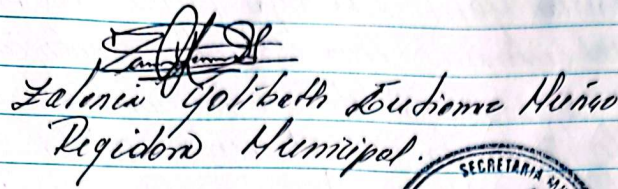 Zalenia Yolibeth Gutierrez Muñoz
Regidora Municipal.
SECRETARIA